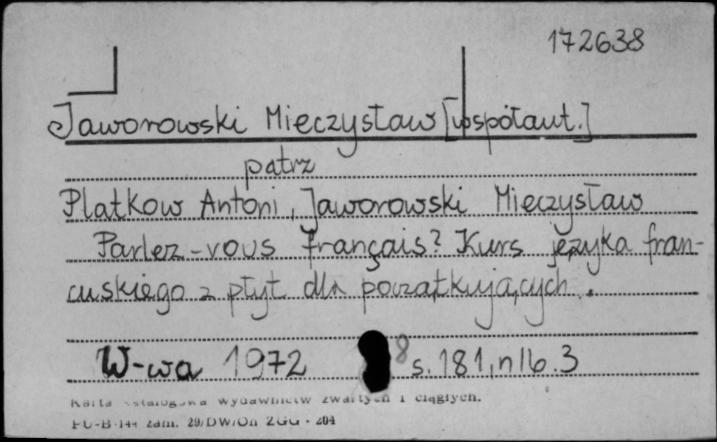 172638
Jaworowski Mieczysław [współaut.]
patrz
Platkow Antoni, Jaworowski Mieczysław
Parlez-vous français? Kurs języka fran-
cuskiego z płyt dla początkujących.
W-wa 1972 8 s. 181, nlb. 3
Karta katalogowa wydawnictw zwartych i ciągłych.
PU-B-144 zam. 29/DW/On ZGG - 204